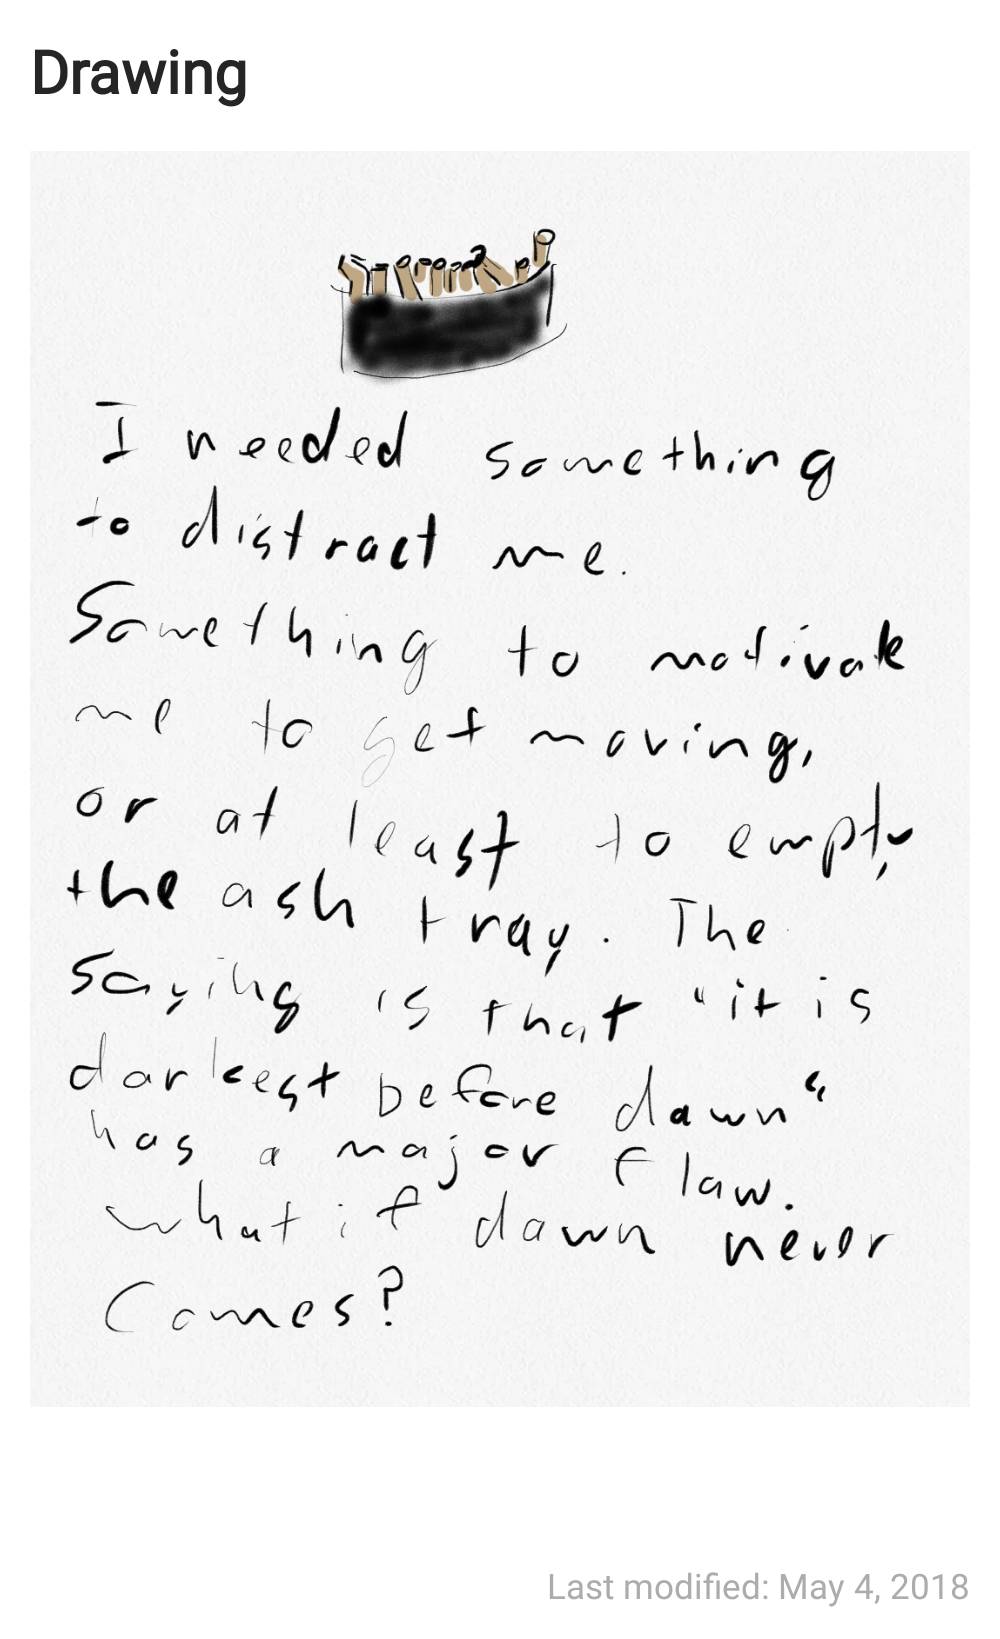 Drawing
I needed something
to distract me.
Something to motivate
me to get moving,
or at least to empty
the ash tray. The
saying is that "it is
darkest before dawn"
has a major flaw.
what if dawn never
Comes?
Last modified: May 4, 2018